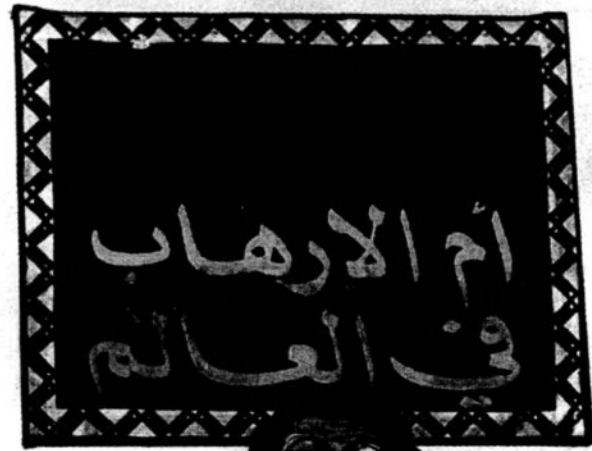 أم الارهاب
في العالم